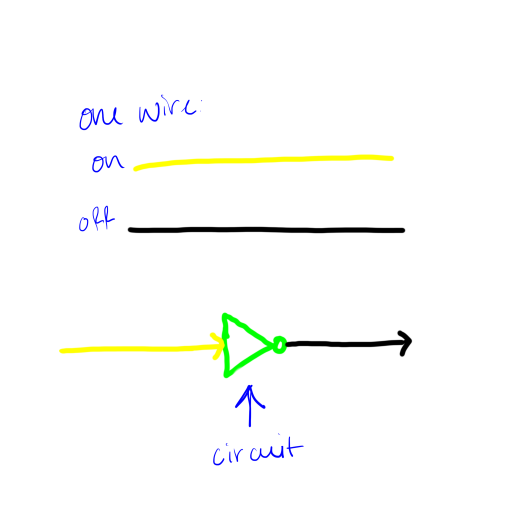 one wire:
on
off
circuit